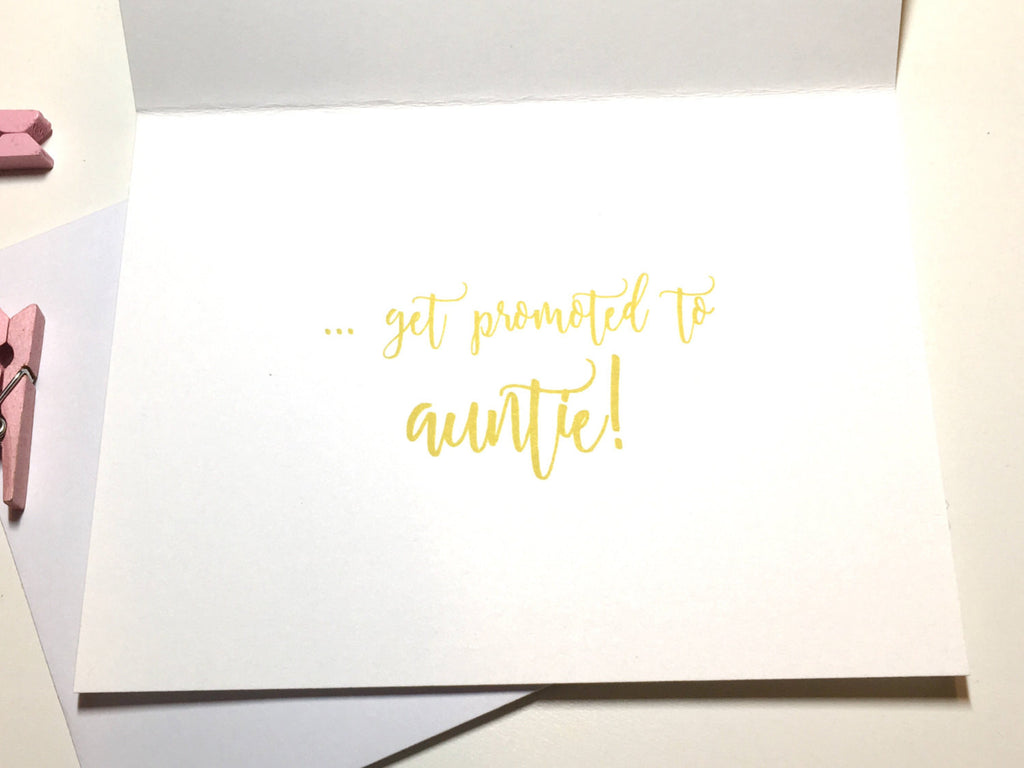 ... get promoted to
auntie!